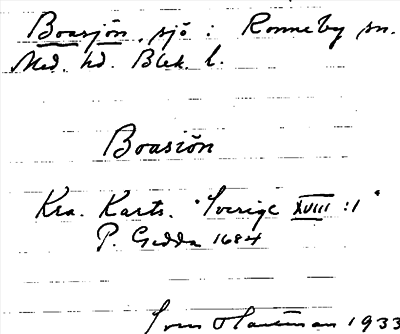 Boasjön, sjö : Ronneby sn.
Med. hd. Blek. l.
Boasiön
Kra. Karts. "Sverige XVIII :1"
P. Gedda 1684
1933